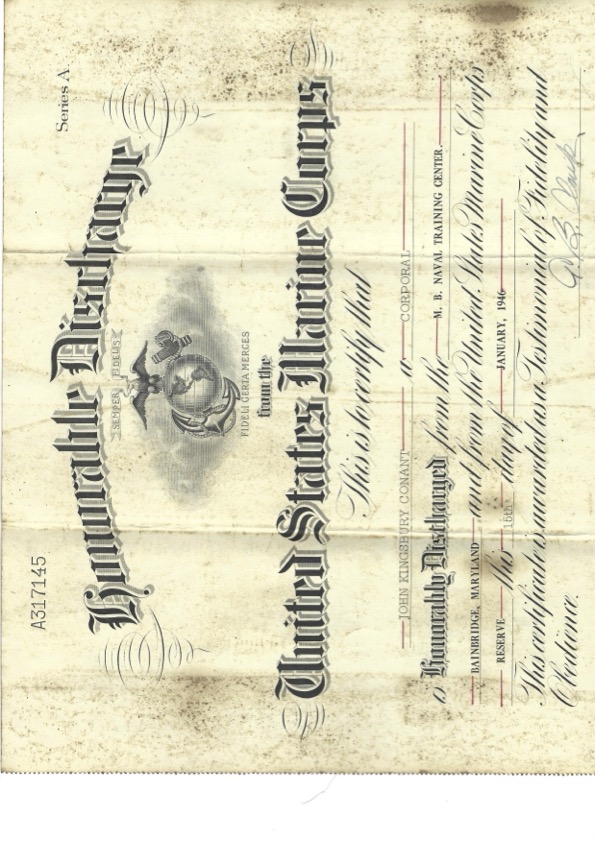 A317145
Series A
Honorable Discharge
SEMPER FIDELIS
FIDELI CERTA MERCES
from the
United States Marine Corps
This is to certify that
JOHN KINGSBURY CONANT a CORPORAL
is Honorably Discharged from the M. B. NAVAL TRAINING CENTER.
BAINBRIDGE, MARYLAND and from the United States Marine Corps
RESERVE this 15th day of JANUARY, 1946
This certificate is awarded as a Testimonial of Fidelity and
Obedience.